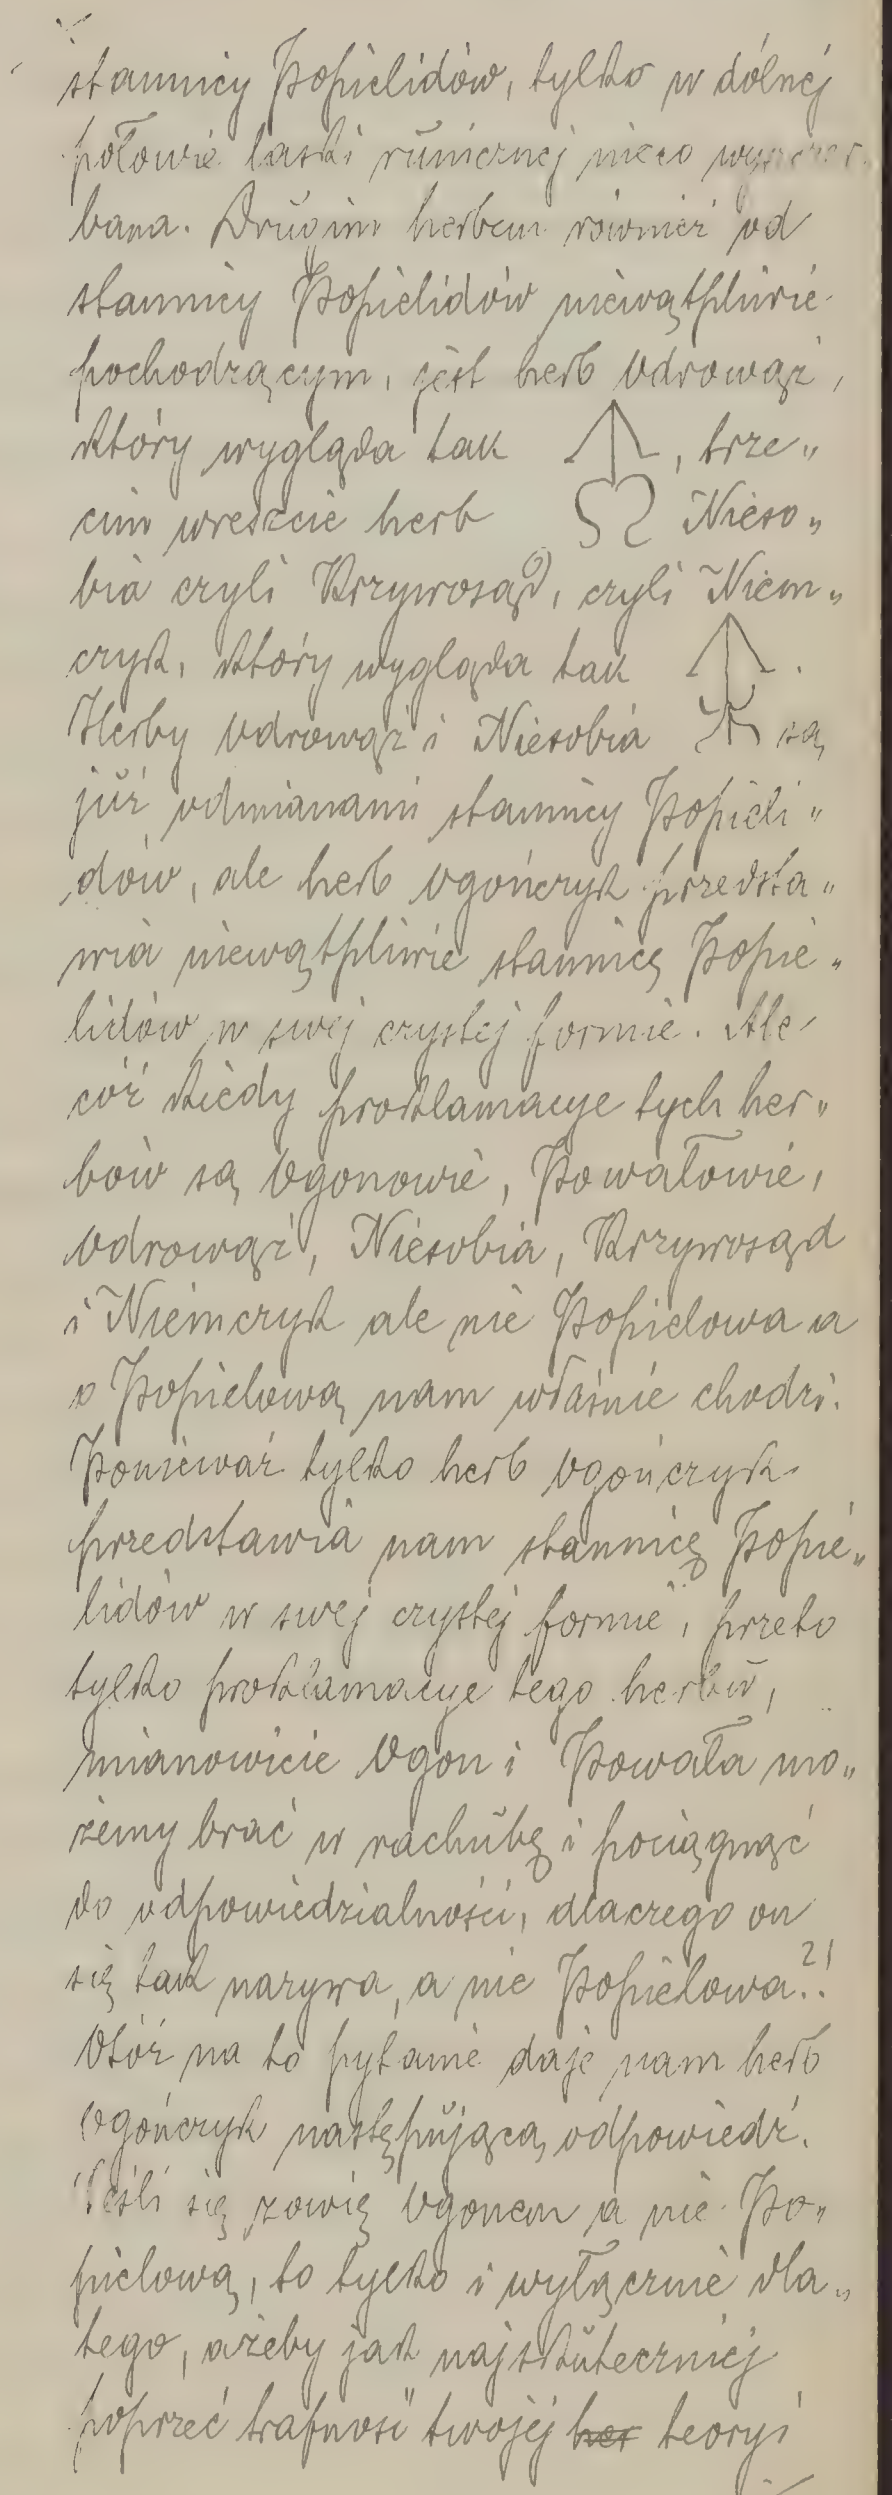 stannicy Popielidów, tylko w dólnej
połowie laski runicznej nieco wyszczer
bana. Drugim herbem również od
stannicy Popielidów niewątpliwie
pochodzącym, jest herb Odrowąż,
który wygląda tak , trze„
cim wreszcie herb Nieso„
bia czyli Krzywosąd, czyli Niem„
czyk, który wygląda tak .
Herby Odrowąż i Niesobia są
już odmianami stannicy Popieli„
dów, ale herb Ogończyk przedsta„
wia niewątpliwie stannicę Popie„
lidów w swej czystej formie. Ale
cóż kiedy proklamacye tych her„
bów są Ogonowie, Powałowie,
Odrowąż, Niesobia, Krzywosąd
i Niemczyk ale nie Popielowa a
o Popielową nam właśnie chodzi.
Ponieważ tylko herb Ogończyk
przedstawia nam stannicę Popie„
lidów w swej czystej formie, przeto
tylko proklamacye tego herbu,
mianowicie Ogon i Powała mo„
żemy brać w rachubę i pociągnąć
do odpowiedzialności, dlaczego on
się tak nazywa, a nie Popielowa?!
Otóż na to pytanie daje nam herb
Ogończyk następującą odpowiedź.
Jeśli się zowię Ogonem a nie Po„
pielową, to tylko i wyłącznie dla„
tego, ażeby jak najskuteczniej
poprzeć trafność twojéj her teoryi